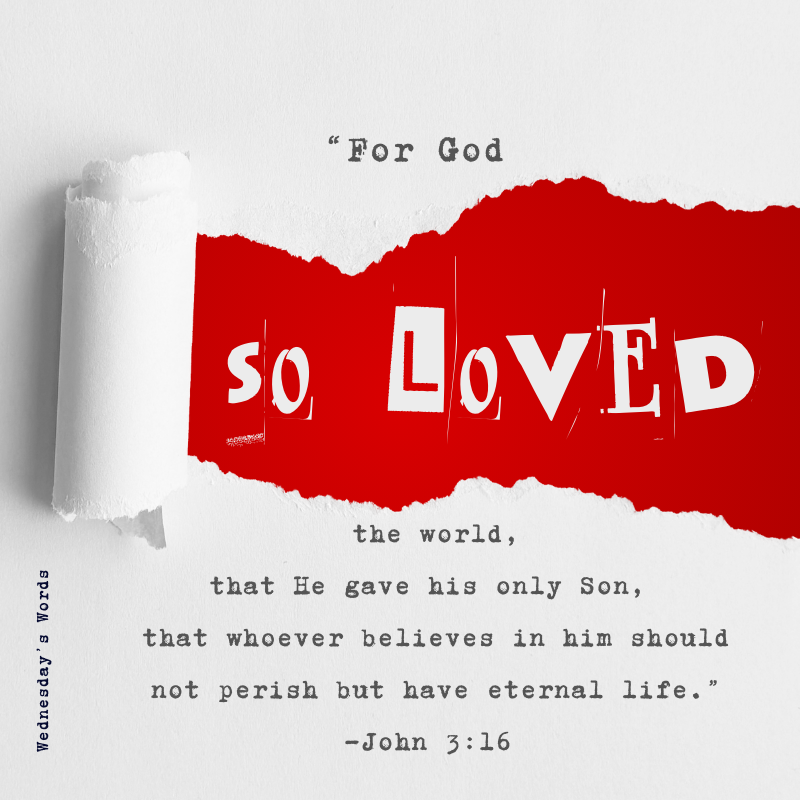 “For God
SO LOVED
the world,
that He gave his only Son,
that whoever believes in him should
not perish but have eternal life.”
-John 3:16
Wednesday's Words